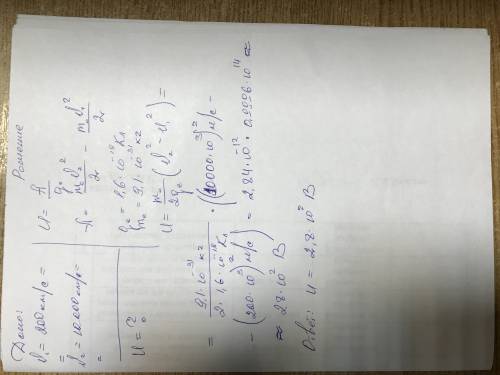 Дано:
υ₁ = 200 км/с =
=
υ₂ = 10 000 км/с =
=
U = ?
Решение
U = A/qₑ
A = mₑυ₂²/2 - mₑυ₁²/2
qₑ = 1,6·10⁻¹⁹ Кл
mₑ = 9,1·10⁻³¹ кг
U = m/2qₑ (υ₂² - υ₁²) =
= 9,1·10⁻³¹ кг / 2·1,6·10⁻¹⁹ Кл · ((10000·10³)² м/с -
- (200·10³)² м/с) = 2,84·10⁻¹² · 0,9996·10¹⁴ ≈
≈ 28·10² В
Ответ: U = 2,8·10² В